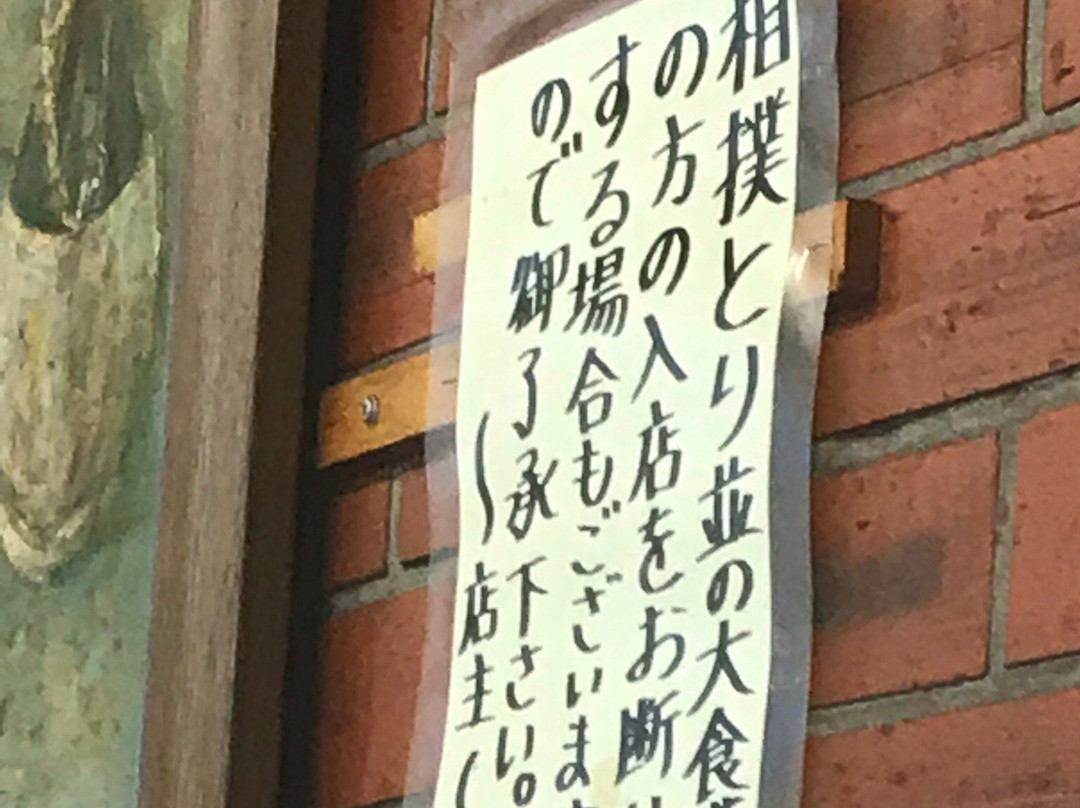 相撲とり並の大食
の方の入店をお断
する場合もございま
ので御了承下さい。
〜店主〜